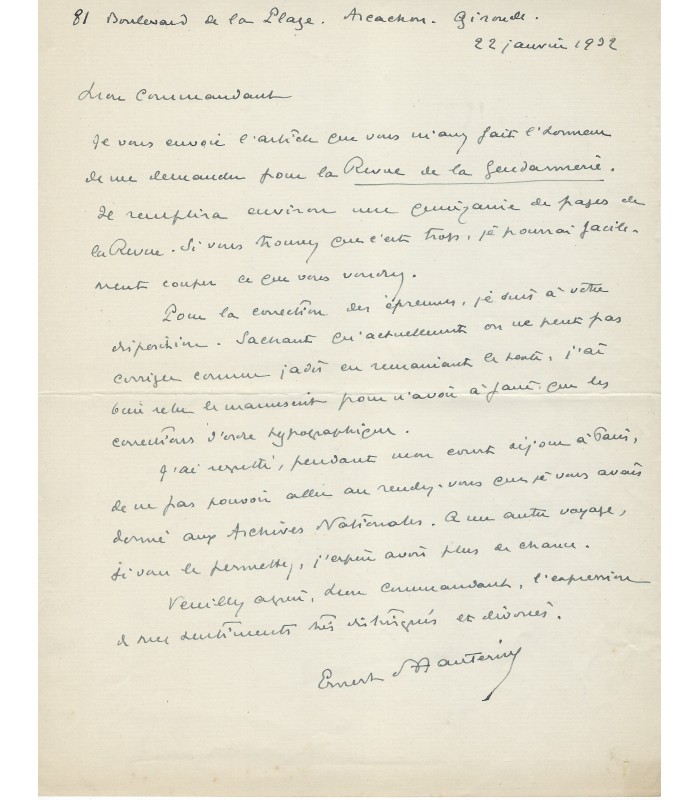 81 Boulevard de la Plage. Arcachon. Gironde.
22 janvier 1932
Mon Commandant
Je vous envoie l'article que vous m'avez fait l'honneur
de me demander pour la Revue de la Gendarmerie.
Il remplira environ une quinzaine de pages de
la Revue. Si vous trouvez que c'est trop, je pourrai facile-
ment couper ce que vous voudrez.
Pour la correction des épreuves, je suis à votre
disposition. Sachant qu'actuellement on ne peut pas
corriger comme jadis en remaniant le texte, j'ai
bien relu le manuscrit pour n'avoir à faire que les
corrections d'ordre typographique.
J'ai regretté, pendant mon court séjour à Paris,
de ne pas pouvoir aller au rendez-vous que je vous avais
donné aux Archives Nationales. A un autre voyage,
si vous le permettez, j'espère avoir plus de chance.
Veuillez agréer, mon commandant, l'expression
de mes sentiments très distingués et dévoués.
Ernest d'Hauterive